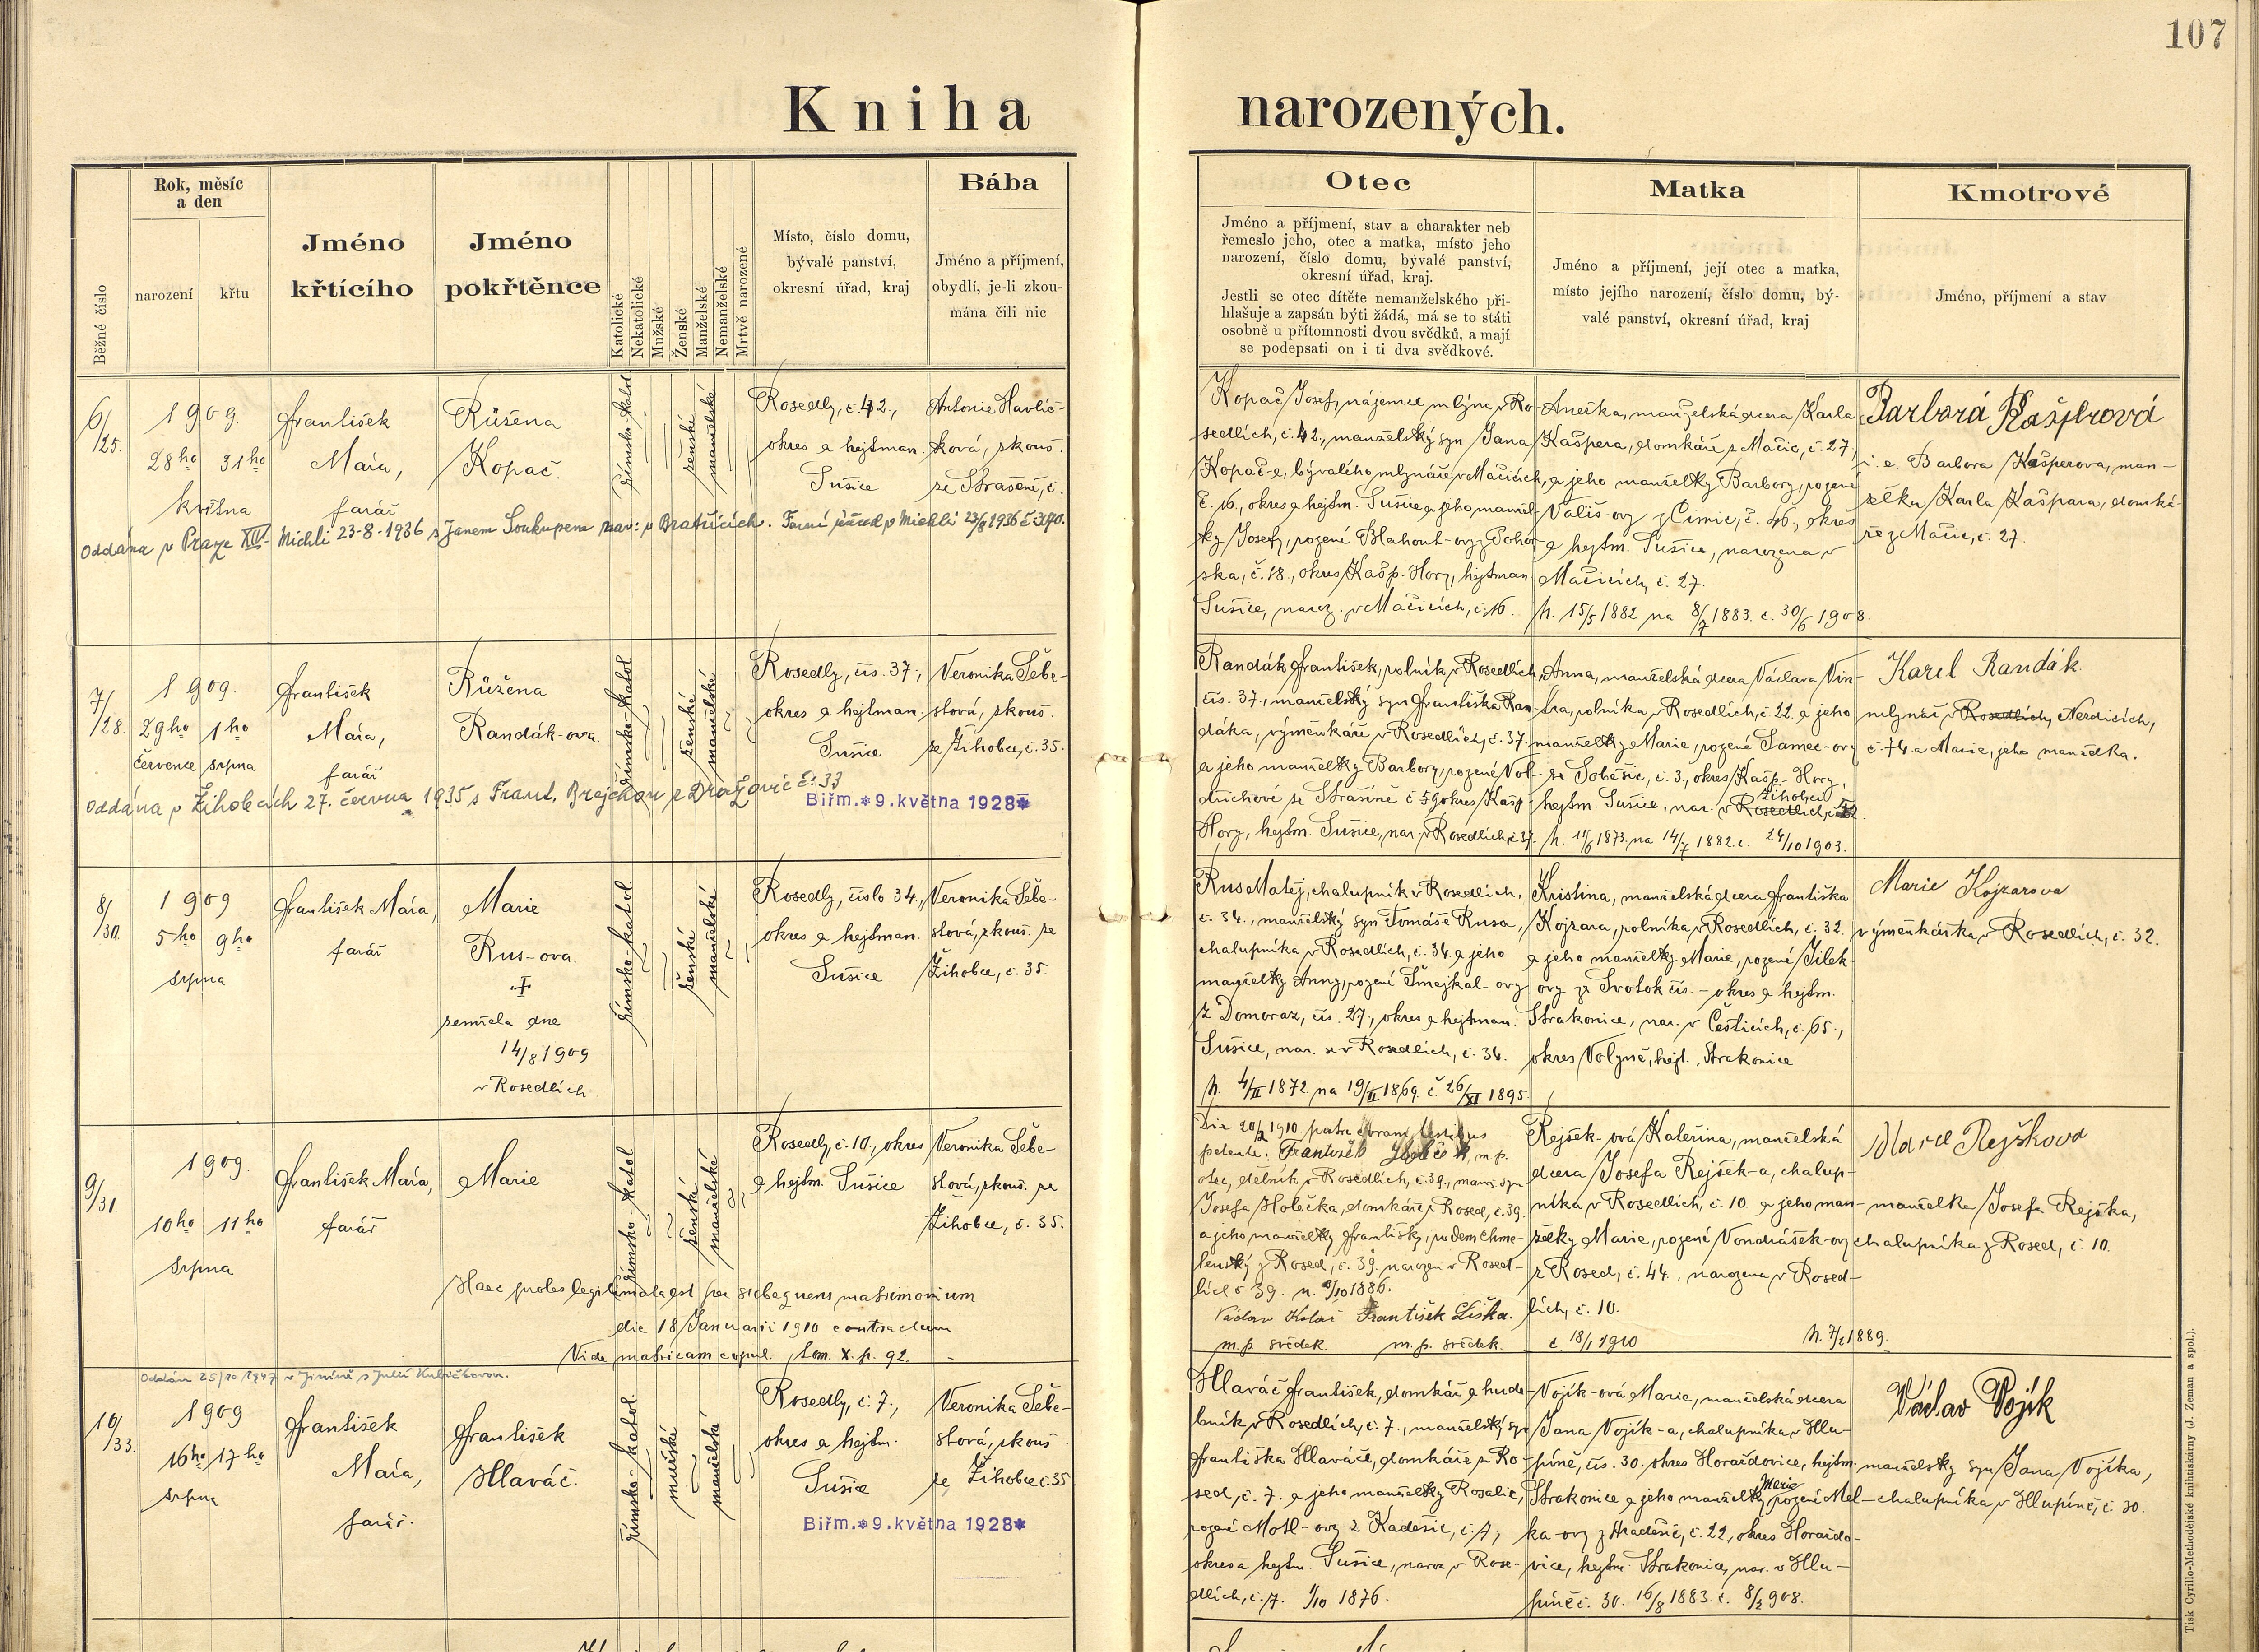 107
Kniha narozených.
Běžné číslo
Rok, měsíc
a den
narození
křtu
Jméno
křtícího
Jméno
pokřtěnce
Katolické
Nekatolické
Mužské
Ženské
Manželské
Nemanželské
Mrtvě narozené
Místo, číslo domu,
bývalé panství,
okresní úřad, kraj
Bába
Jméno a příjmení,
obydlí, je-li zkou-
mána čili nic
Otec
Jméno a příjmení, stav a charakter neb
řemeslo jeho, otec a matka, místo jeho
narození, číslo domu, bývalé panství,
okresní úřad, kraj.
Jestli se otec dítěte nemanželského při-
hlašuje a zapsán býti žádá, má se to státi
osobně u přítomnosti dvou svědků, a mají
se podepsati on i ti dva svědkové.
Matka
Jméno a příjmení, její otec a matka,
místo jejího narození, číslo domu, bý-
valé panství, okresní úřad, kraj
Kmotrové
Jméno, příjmení a stav
6/25.
1909.
28ho 31ho
května
František
Mára,
farář
Růžena
Kopač.
římsko-katol
ženské
manželské
Rosedly, č. 42.,
okres a hejtman.
Sušice
Antonie Havlíč-
ková, zkouš.
ze Strašíně, č.
Oddána v Praze XIV- Michli 23-8-1936 s Janem Soukupem nar: v Bratřicích. Farní úřad v Michli 23/8 1936 č 3170.
Kopač Josef, nájemce mlýna v Ro-
sedlích, č. 42., manželský syn Jana
Kopač-e, bývalého mlynáře v Mačicích,
č. 16., okres a hejtm. Sušice a jeho manžel-
ky Josefy, rozené Blahout-ovy z Pohor-
ska, č. 18., okres Kašp. Hory, hejtman
Sušice, naroz. v Mačicích, č. 16.
Anežka, manželská dcera Karla
Kašpera, domkáře z Mačic, č. 27,
a jeho manželky Barbory, rozené
Vališ-ovy z Čimic, č. 46., okres
a hejtm. Sušice, narozena v
Mačicích, č. 27.
n. 15/5 1882 na 8/7 1883. č. 30/6 1908.
Barbora Kašperová
i. e. Barbora Kašperova, man-
želka Karla Kašpara, domká-
ře z Mačic, č. 27.
7/28.
1909.
29ho 1ho
července srpna
František
Mára,
farář
Růžena
Randák-ova.
římsko-katol
ženské
manželské
Rosedly, čís. 37.,
okres a hejtman.
Sušice
Veronika Šebe-
stová, zkouš.
ze Žihobce, č. 35.
Oddána v Žihobcích 27. června 1935 s Frant. Brejchou z Dražovic č: 33
Biřm. * 9. května 1928 *
Randák František, rolník v Rosedlích,
čís. 37., manželský syn Františka Ran-
dáka, výměnkáře v Rosedlích, č. 37.
a jeho manželky Barbory, rozené Vol-
dřichové ze Strašíně č 59 okres Kašp
Hory, hejtm. Sušice, nar. v Rosedlích, č 37.
Anna, manželská dcera Václava Vin-
tra, rolníka v Rosedlích, č. 22. a jeho
manželky Marie, rozené Samec-ovy
ze Soběšic, č. 3., okres Kašp. Hory,
Žihobci
hejtm. Sušice, nar. v Rosedlích, č.
n. 11/6 1873. na 14/7 1882. č. 24/10 1903.
Karel Randák
mlynář v Rosedlích, Nezdicích,
č. 74 a Marie, jeho manželka.
8/30.
1909
5ho 9ho
srpna
František Mára,
farář
Marie
Rus-ova.
zemřela dne
14/8 1909
v Rosedlích
římsko-katol
ženské
manželské
Rosedly, číslo 34.,
okres a hejtman.
Sušice
Veronika Šebe-
stová, zkouš. ze
Žihobce, č. 35.
Rus Matěj, chalupník v Rosedlích,
č. 34., manželský syn Tomáše Rusa,
chalupníka v Rosedlích, č. 34. a jeho
manželky Anny, rozené Šmejkal-ovy
z Domoraz, čís. 27., okres a hejtman.
Sušice, nar. v Rosedlích, č. 34.
n. 4/II 1872. na 19/II 1869. č. 26/XI 1895.
Kristina, manželská dcera Františka
Kojzara, rolníka v Rosedlích, č. 32.
a jeho manželky Marie, rozené Jílek-
ovy ze Svotok čís. - okres a hejtm.
Strakonice, nar. v Česticích, č. 65.,
okres Volyně, hejt. Strakonice
Marie Kojzarova
výměnkářka v Rosedlích, č. 32.
9/31.
1909.
10ho 11ho
srpna
František Mára,
farář
Marie
římsko-katol
ženské
manželské
Rosedly, č. 10., okres
a hejtm. Sušice
Veronika Šebe-
stová, zkouš. ze
Žihobce, č. 35.
Haec proles legitimata est per subsequens matrimonium
die 18 Januarii 1910 contractum
Vide matricam copul. tom. X. p. 92.
Die 20/2 1910. patre coram testibus
petente: František m. p.
otec, dělník v Rosedlích, č. 39., manž. syn
Josefa Holečka, domkáře z Rosed, č. 39.
a jeho manželky Františky, rodem Chme-
lenský z Rosed, č. 39. narozen v Rosed-
lích č 39. n. /10 1886.
Václav Kolář František Liška.
m. p. svědek. m. p. svědek.
Rejšek-ová Kateřina, manželská
dcera Josefa Rejšek-a, chalup-
níka v Rosedlích, č. 10 a jeho man-
želky Marie, rozené Vondrášek-ovy
z Rosed, č. 44., narozena v Rosed-
lích, č. 10.
č 18/1 1910 n. 7/1 1889.
Marie Rejškova
manželka Josefa Rejška,
chalupníka z Rosed, č. 10.
Oddán 25/10 1947 v Jiníně s Julií Kubičkovou.
10/33.
1909
16ho 17ho
srpna
František
Mára,
farář.
František
Hlaváč.
římsko-katol.
mužské
manželské
Rosedly, č. 7.,
okres a hejtm.
Sušice
Veronika Šebe-
stová, zkouš
ze Žihobce č. 35
Biřm. * 9. května 1928 *
Hlaváč František, domkář a hude-
bník v Rosedlích, č. 7., manželský syn
Františka Hlaváče, domkáře z Ro-
sed, č. 7. a jeho manželky Rosalie,
rozené Motl-ovy z Kadešic, č. 7,
okres a hejtm. Sušice, naroz. v Rose-
dlích, č. 7. 1/10 1876.
Vojík-ová Marie, manželská dcera
Jana Vojík-a, chalupníka v Hlu-
píně, čís. 30. okres Horažďovice, hejtm.
Marie
Strakonice a jeho manželky, rozené Mel-
ka-ovy z Hradešic, č. 22., okres Horaždo-
vice, hejtm. Strakonice, nar. v Hlu-
píně č. 30. 16/8 1883. č. 8/2 908.
Václav Vojík
manželský syn Jana Vojíka,
chalupníka v Hlupíně, č. 30.
Tisk Cyrillo-Methodějské knihtiskárny (J. Zeman a spol.).